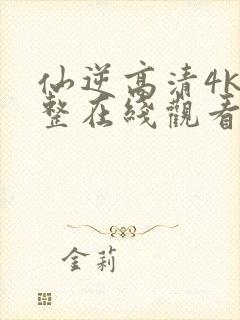 仙逆高清4K
整在綫觀看
金莉